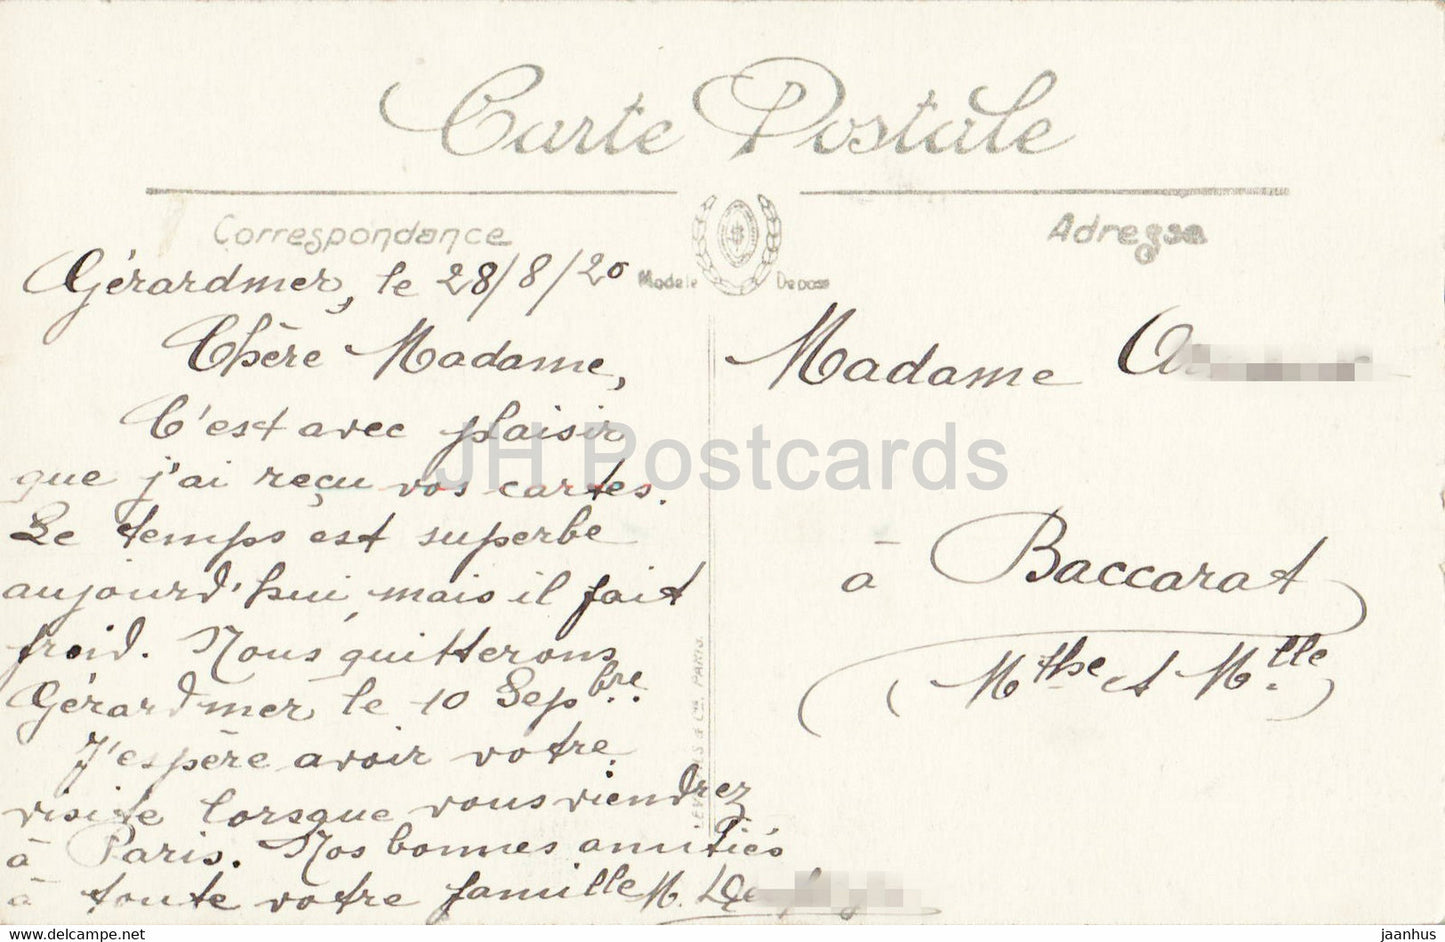 Carte Postale
Correspondance
Adresse
Modele Depose
Gérardmer, le 28/8/20
Chère Madame,
C'est avec plaisir
que j'ai reçu vos cartes.
Le temps est superbe
aujourd'hui, mais il fait
froid. Nous quitterons
Gérardmer le 10 Sepbre.
J'espère avoir votre
visite lorsque vous viendrez
à Paris. Nos bonnes amitiés
à toute votre famille M.
Madame
à Baccarat
(Mthe et Mlle)
& Cie, PARIS.
JH Postcards
www.delcampe.net
jaanhus